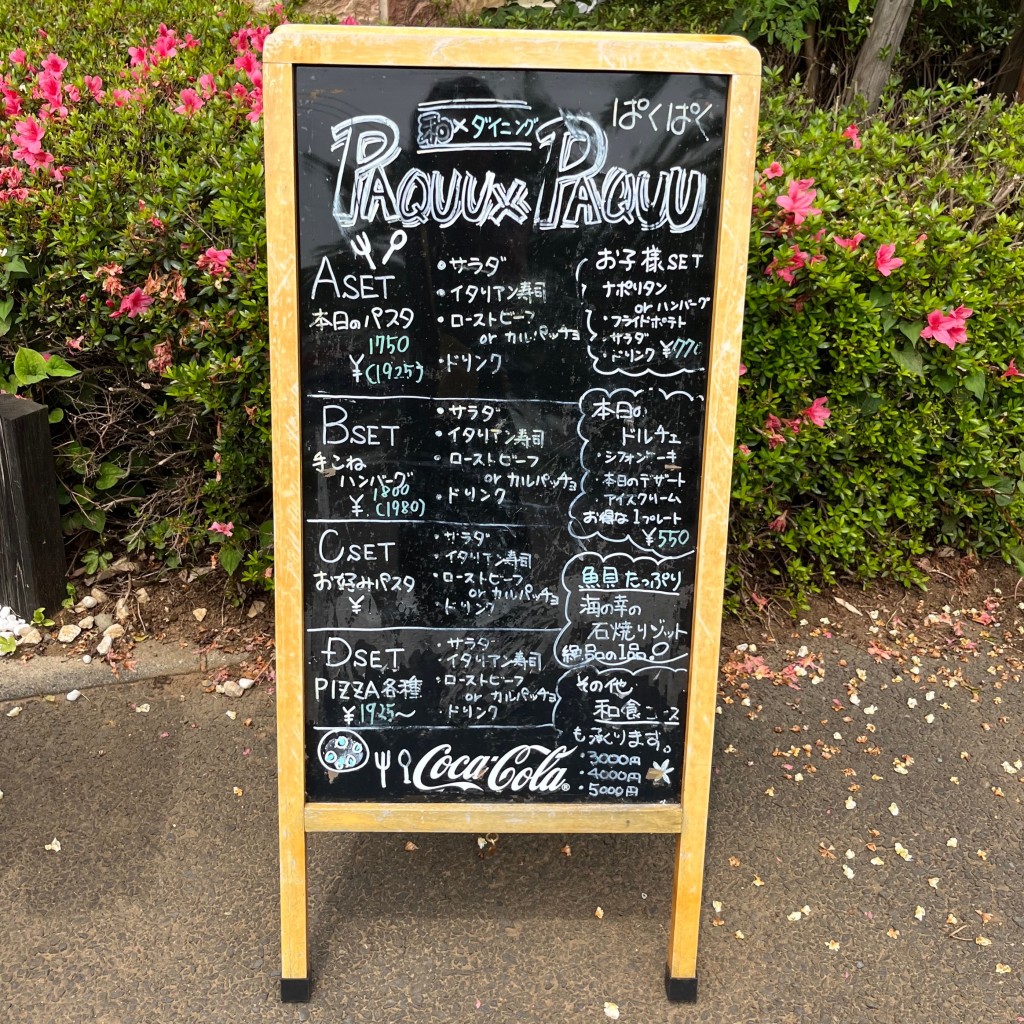 ぱくぱく
和×ダイニング
PAQUU×PAQUU
ASET
本日のパスタ
1750
¥(1925)
・サラダ
・イタリアン寿司
・ローストビーフ
or カルパッチョ
・ドリンク
BSET
手こね
ハンバーグ
1800
¥(1980)
・サラダ
・イタリアン寿司
・ローストビーフ
or カルパッチョ
・ドリンク
CSET
お好みパスタ
¥
・サラダ
・イタリアン寿司
・ローストビーフ
or カルパッチョ
・ドリンク
DSET
PIZZA各種
¥1925〜
・サラダ
・イタリアン寿司
・ローストビーフ
or カルパッチョ
・ドリンク
お子様SET
ナポリタン
or ハンバーグ
・フライドポテト
・サラダ
・ドリンク ¥770
本日の
ドルチェ
・シフォンケーキ
・本日のデザート
・アイスクリーム
お得な1プレート
¥550
魚貝たっぷり
海の幸の
石焼リゾット
絶品の1品。
その他
和食コース
も承ります。
・3000円
・4000円
・5000円
Coca-Cola®